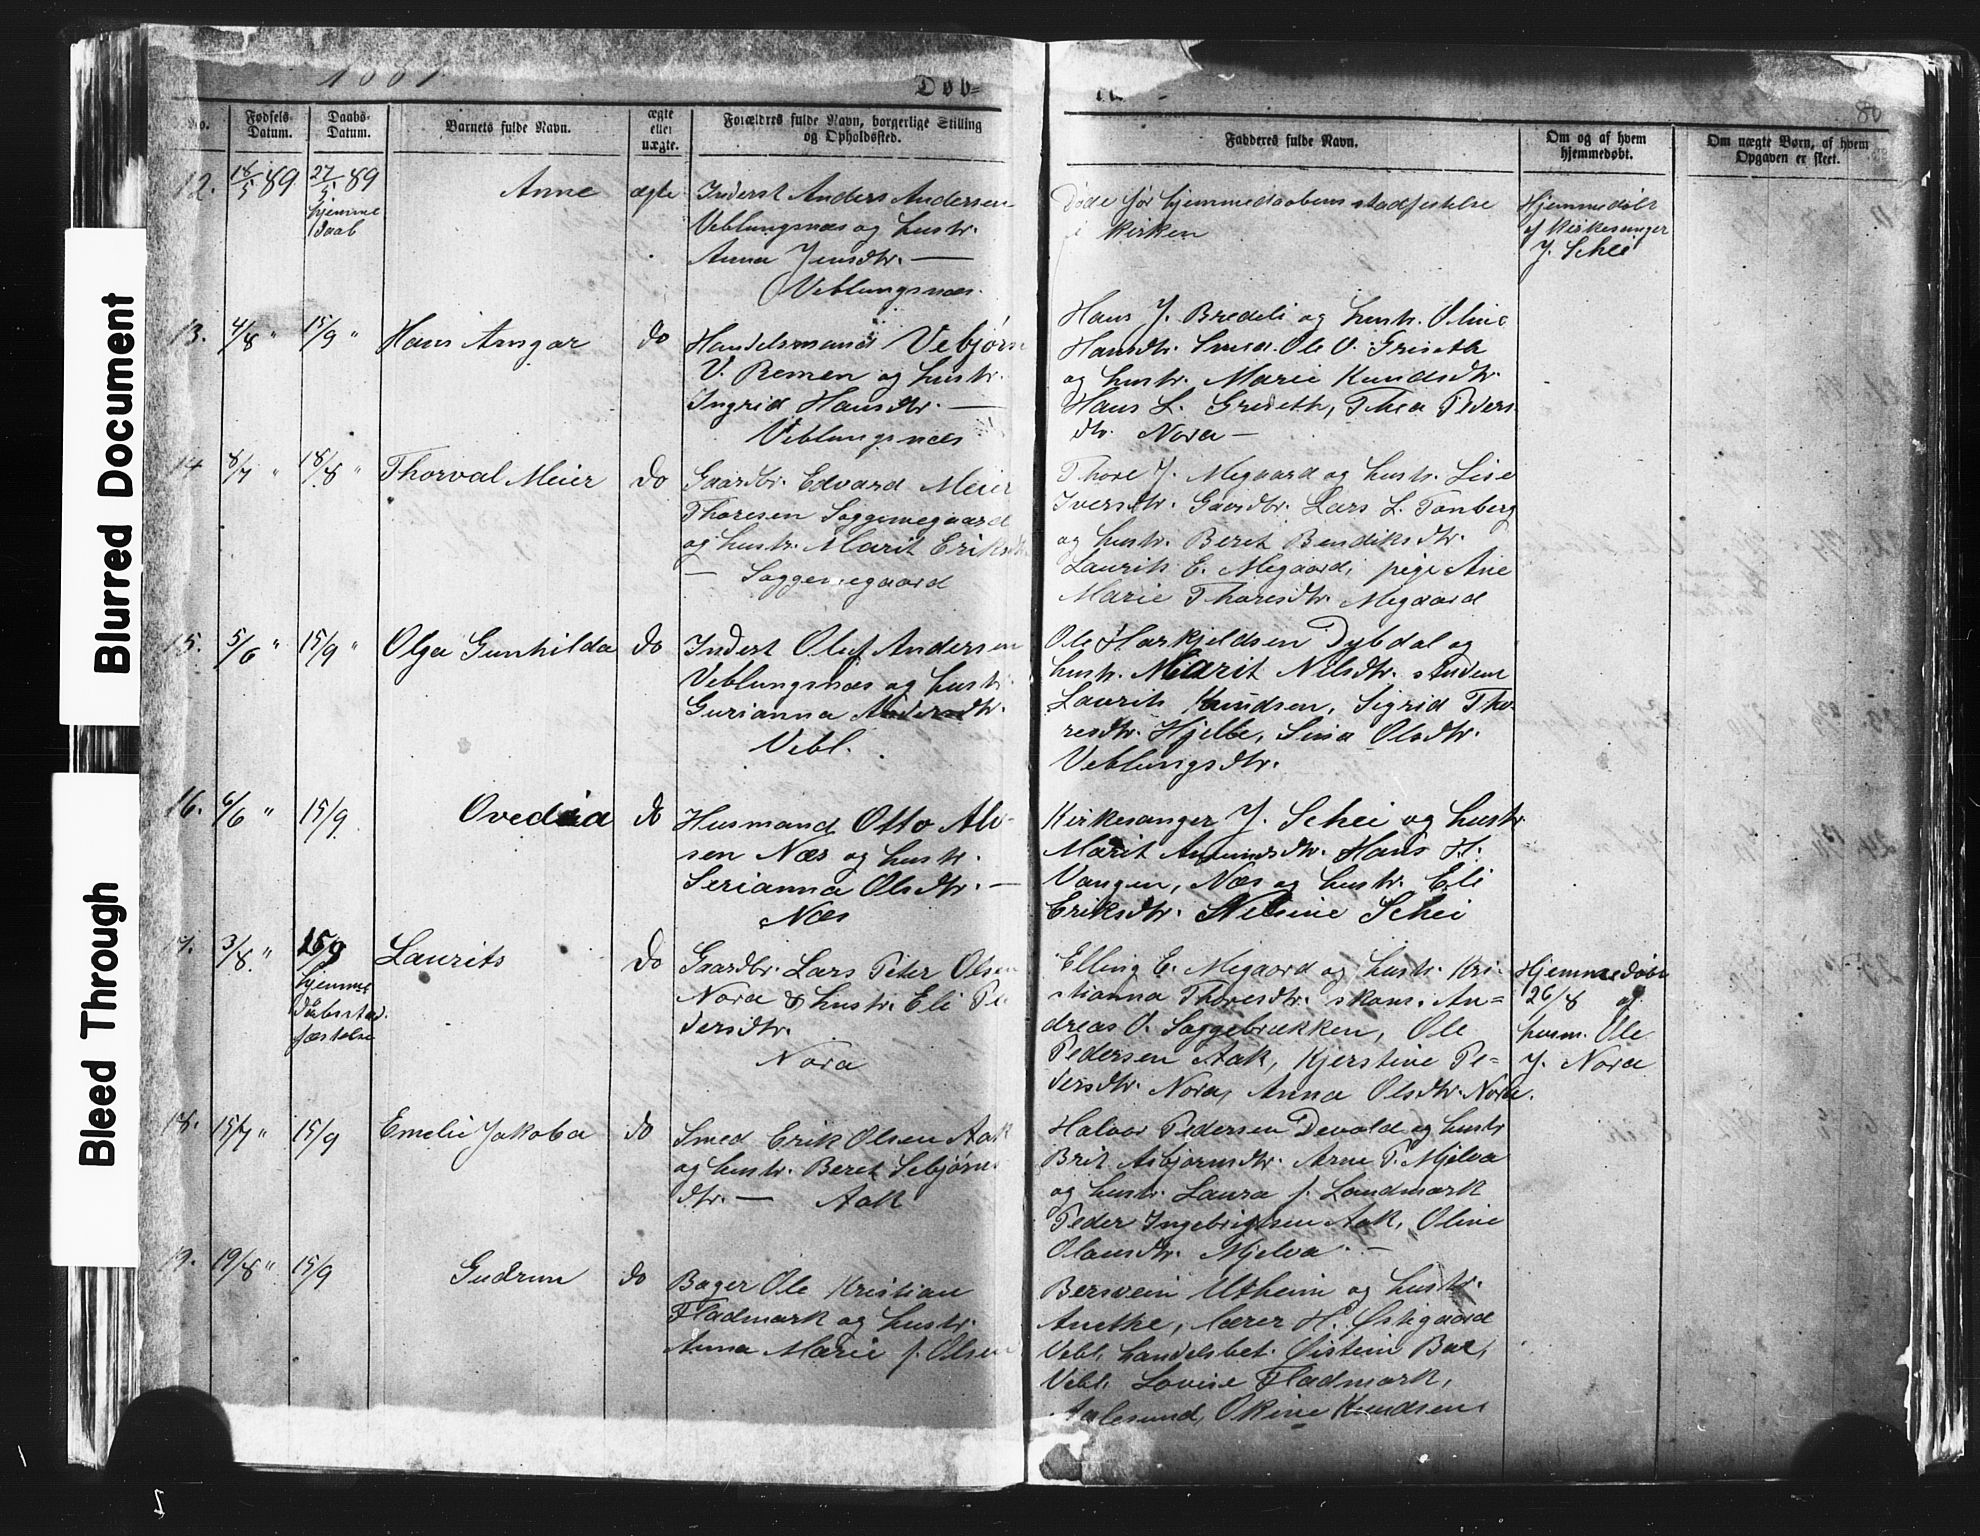 Blurred Document
Bleed Through
1889
Døb=
80
No.
Fødsels-
Datum.
Daabs-
Datum.
Barnets fulde Navn.
ægte
eller
uægte.
Forældres fulde Navn, borgerlige Stilling
og Opholdssted.
Fadderes fulde Navn.
Om og af hvem
hjemmedøbt.
Om uægte Børn, af hvem
Opgaven er skeet.
12.
18/5 89
27/5 89
hjemme
daab
Anne
ægte
Inderst Anders Andersen
Veblungsnæs og hustr.
Anna Jensdtr. —
Veblungsnæs.
Døde før hjemmedaabens stadfestelse
i kirken
Hjemmedøbt
af Kirkesanger
J. Schei
13.
4/8 "
15/9 "
Hans Ansgar
do
Handelsmand Vebjørn
V. Remen og hustr.
Ingrid Hansdtr. —
Veblungsnæs
Hans J. Bredeli og hustr. Oline
Hansdtr. Smed Ole O. Griseth
og hustr. Marie Knudsdtr.
Hans L. Grseth, Thea Peders
dtr. Nora —
14
8/7 "
18/8 "
Thorval Meier
do
Gaardbr. Edvard Meier
Thoresen Soggemegaard
og hustr. Marit Eriksdtr.
— Soggemegaard
Thore J. Megaard og hustr. Lise
Iversdtr. Gaardbr. Lars L. Tonberg
og hustr. Beret Bendiksdtr.
Laurits E. Megaard, pige Ane
Marie Thoresdtr. Megaard
15.
5/6 "
15/9 "
Olga Gunhilda
do
Inderst Oluf Andersen
Veblungsnæs og hustr.
Gurianna Andersdtr.
Vebl.
Ole Harkjeldsen Dybdal og
hustr. Marit Nilsdtr. student
Laurits Knudsen, Sigrid Tho-
resdtr. Hjelle, Sina Olsdtr.
Veblungsdtr.
16.
6/6 "
15/9
Ovedia
do
Husmand Otto Alv-
sen Næs og hustr.
Serianna Olsdtr. —
Næs
Kirkesanger J. Schei og hustr.
Marit Amundsdtr. Hans H.
Vangen, Næs og hustr. Eli
Eriksdtr. Nelsine Schei
17.
3/8 "
15/9
hjemme
dåbsstad
fæstelse
Laurits
do
Gaardbr. Lars Peter Olsen
Nora & hustr. Eli Pe-
dersdtr.
Nora
Elling E. Megaard og hustr. Kri-
stianna Thoresdtr. skom. An=
dreas O. Soggebrækken, Ole
Pedersen Aak, Kjerstine Pe=
dersdtr. Nora, Anna Olsdtr. Nora.
Hjemmedøbt
26/8 af
husm. Ole
J. Nora
18.
15/7 "
15/9
Emelie Jakoba
do
Smed Erik Olsen Aak
og hustr. Beret Sebjørns
dtr. — Aak
Halvor Pedersen Devold og hustr
Brit Asbjørnsdtr. Arne P. Mjelva
og hustr. Laura f. Landmark
Peder Ingebrigtsen Aak, Oline
Olausdtr. Mjelva. —
19.
19/8 "
15/9
Gudrun
do
Bager Ole Kristian
Fladmark og hustr.
Anna Marie f. Olsen
Bersvein Utheim og hustr.
Anethe, lærer H. Østigaard
Vebl. handelsbet. Øistein Bae,
Vebl. Lovise Fladmark,
Aalesund, Okine Knudsen,